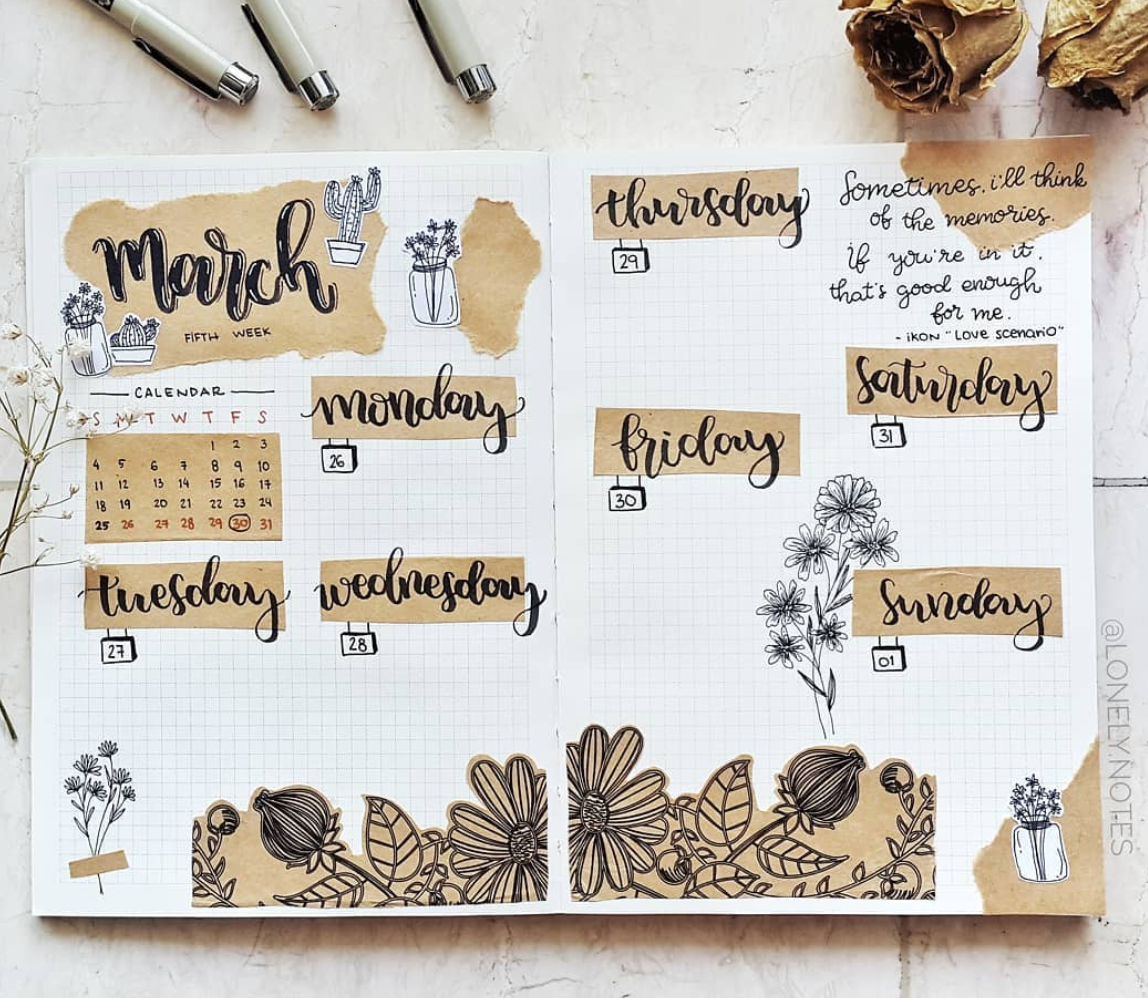 March
FIFTH WEEK
CALENDAR
S M T W T F S
1 2 3
4 5 6 7 8 9 10
11 12 13 14 15 16 17
18 19 20 21 22 23 24
25 26 27 28 29 30 31
monday
26
tuesday
27
wednesday
28
thursday
29
friday
30
Sometimes, i'll think
of the memories.
If you're in it,
that's good enough
for me.
- iKON "Love scenario"
Saturday
31
Sunday
01
@LONELYNOTES